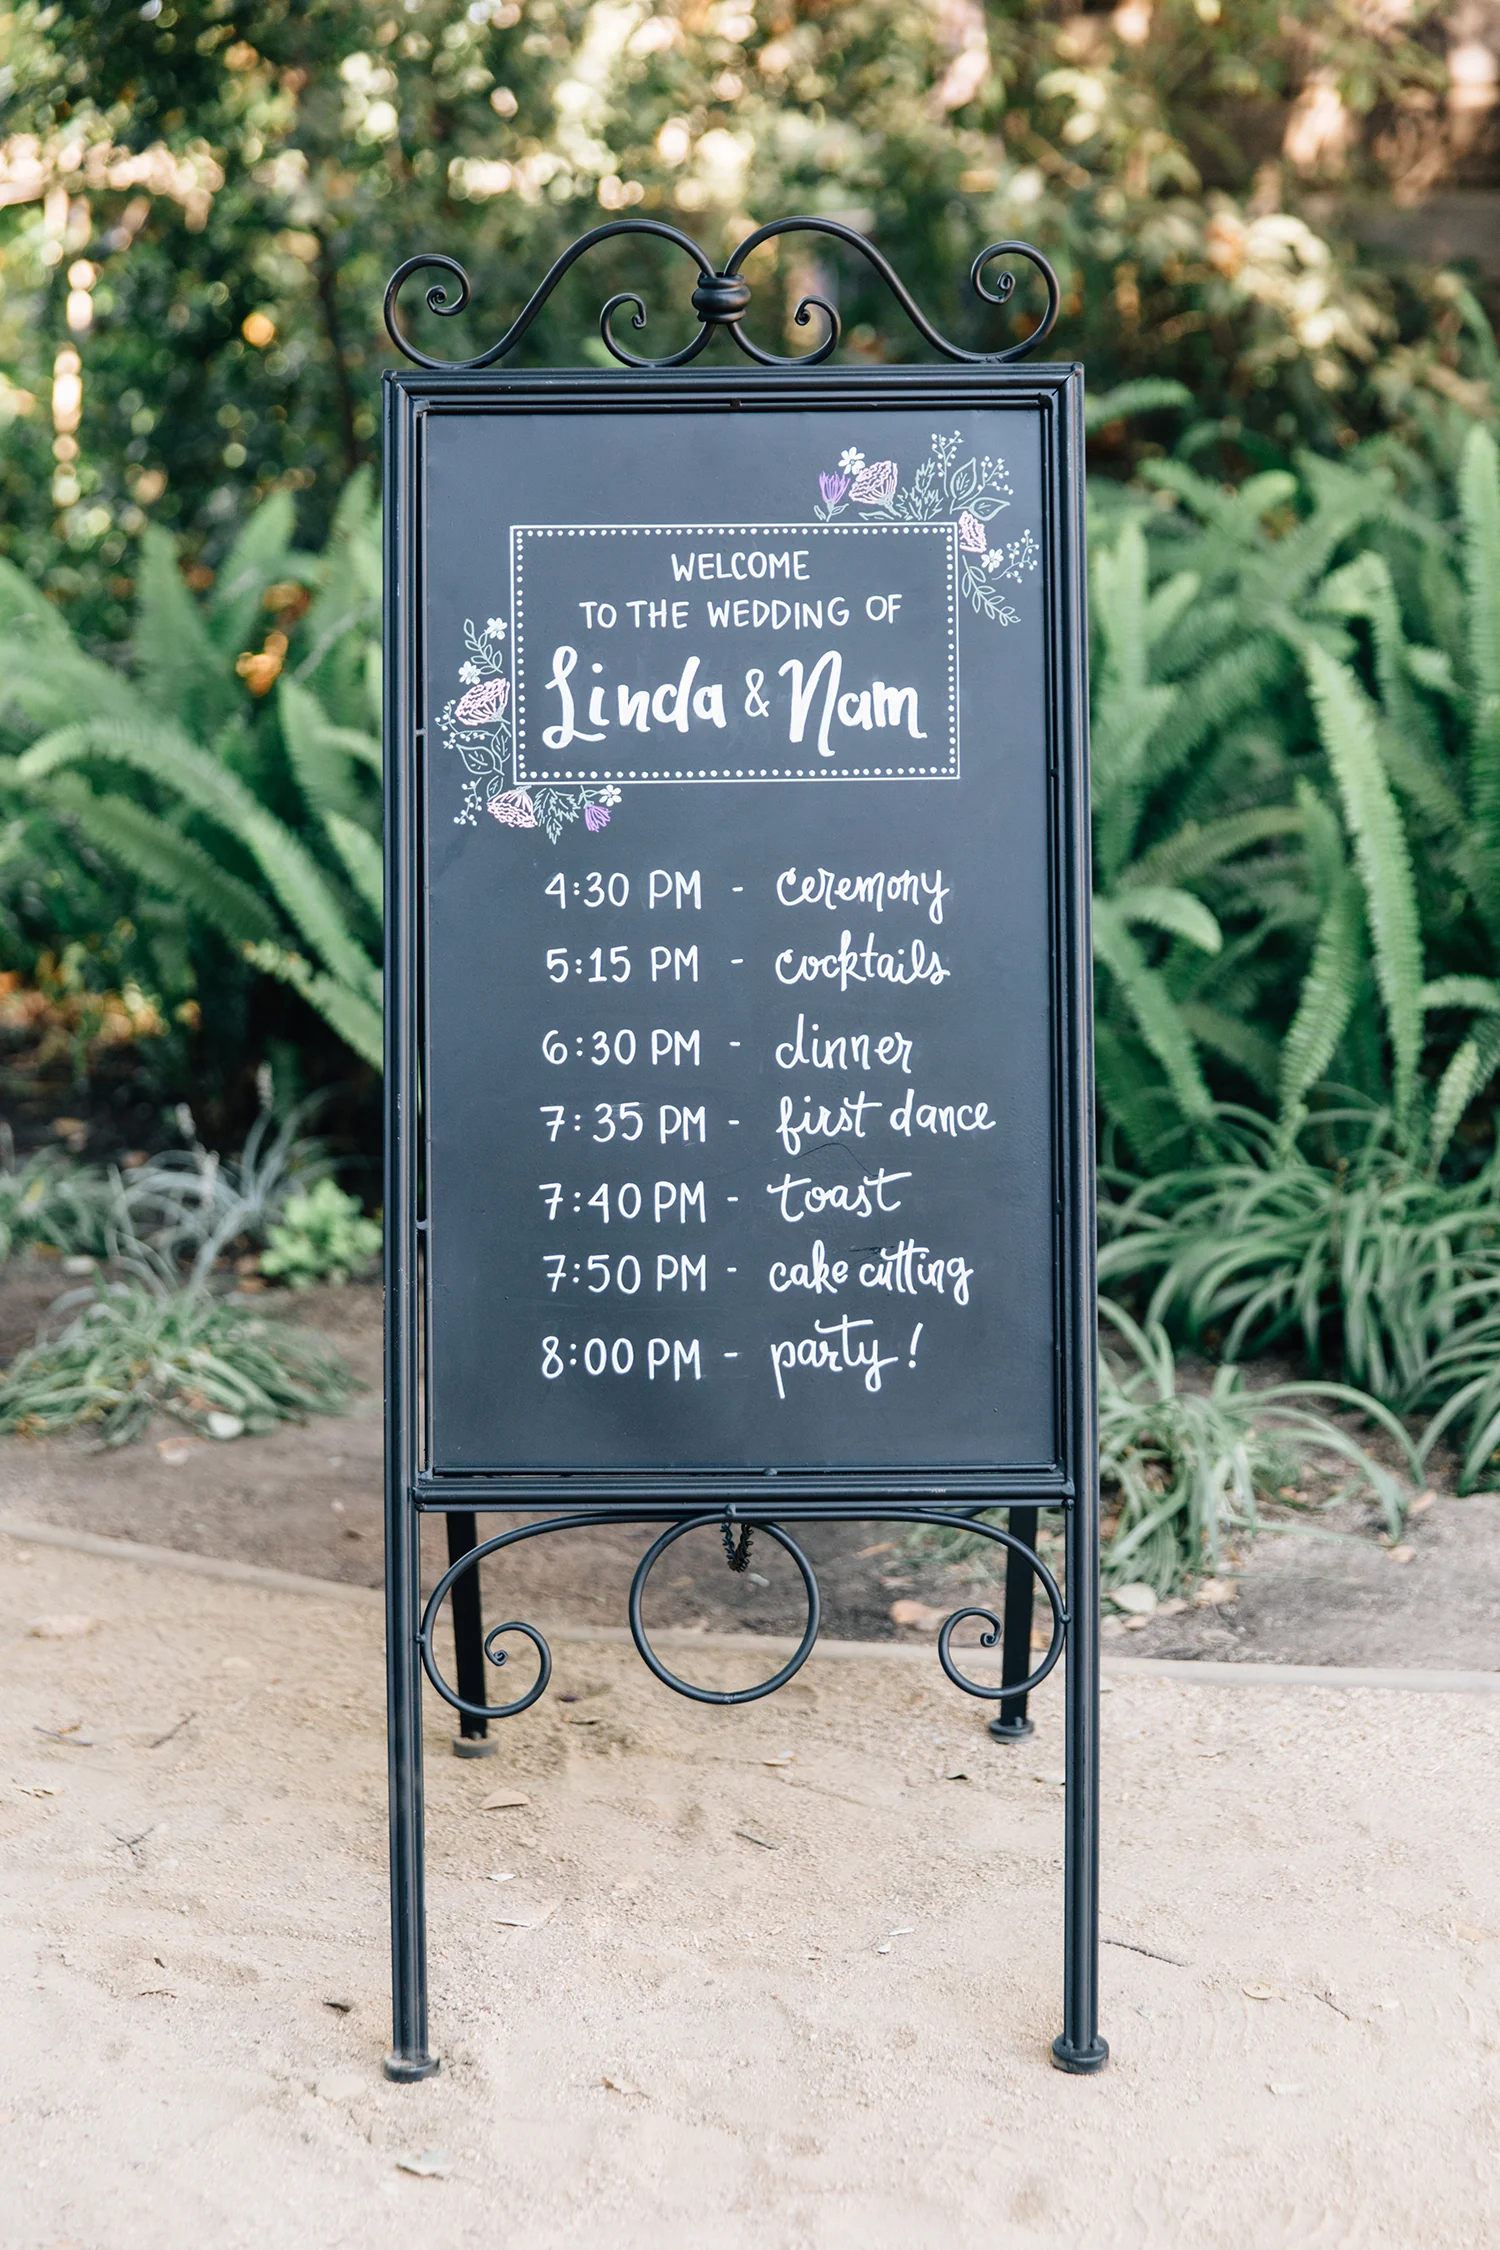 WELCOME
TO THE WEDDING OF
Linda & Nam
4:30 PM - ceremony
5:15 PM - cocktails
6:30 PM - dinner
7:35 PM - first dance
7:40 PM - toast
7:50 PM - cake cutting
8:00 PM - party!